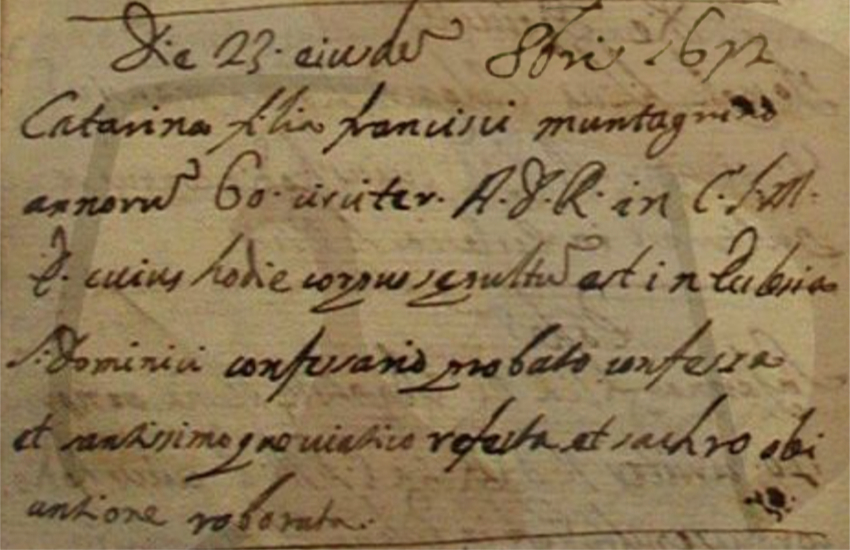 Die 23 eiusdẽ 8bri 1672
Catarina filia francisci muntagnino
annorũ 60. circiter. A. D. R. in C. S. M.
E. cuius hodie corpus sepultũ est in Ecclesia
S. Dominici confessario probato confessa
et santissimoque viatico refecta et sachro obi
antione roborata.